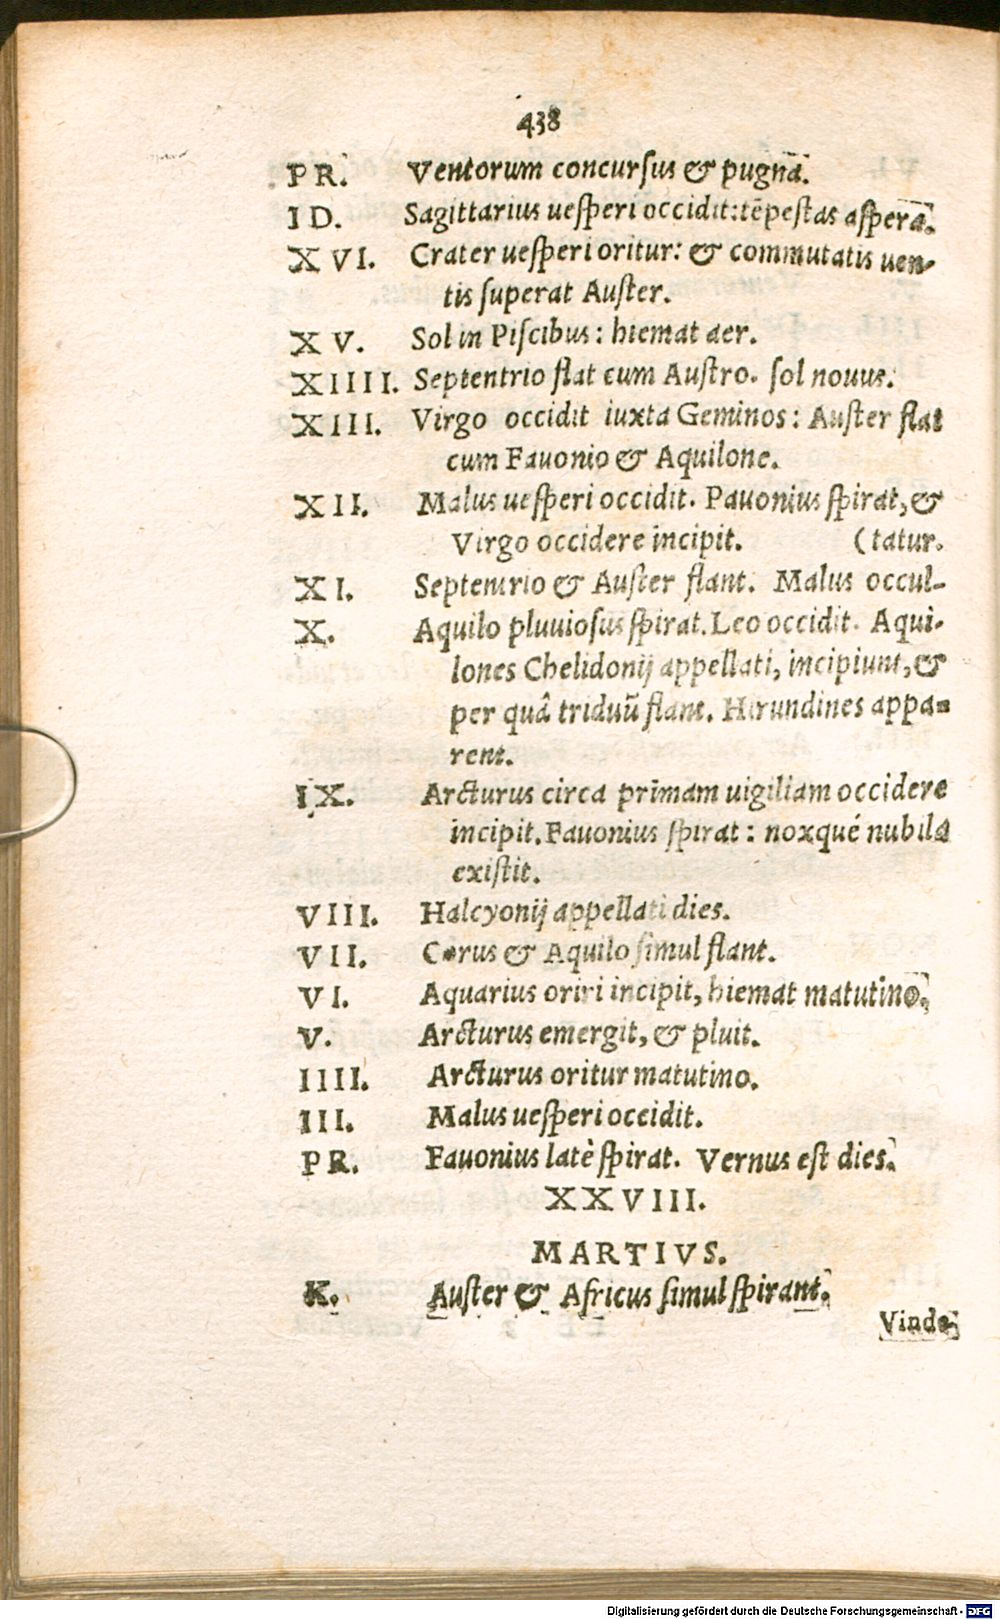 438
PR. Ventorum concursus & pugna.
ID. Sagittarius uesperi occidit: tēpestas aspera.
XVI. Crater uesperi oritur: & commutatis uen-
tis superat Auster.
XV. Sol in Piscibus: hiemat aer.
XIIII. Septentrio flat cum Austro. sol nouus.
XIII. Virgo occidit iuxta Geminos: Auster flat
cum Fauonio & Aquilone.
XII. Malus uesperi occidit. Pauonius spirat, &
Virgo occidere incipit. (tatur.
XI. Septentrio & Auster flant. Malus occul-
X. Aquilo pluuiosus spirat. Leo occidit. Aqui-
lones Chelidonij appellati, incipiunt, &
per quâ triduū flant. Hirundines appa-
rent.
IX. Arcturus circa primam uigiliam occidere
incipit. Fauonius spirat: noxqué nubila
existit.
VIII. Halcyonij appellati dies.
VII. Corus & Aquilo simul flant.
VI. Aquarius oriri incipit, hiemat matutino.
V. Arcturus emergit, & pluit.
IIII. Arcturus oritur matutino.
III. Malus uesperi occidit.
PR. Fauonius latè spirat. Vernus est dies.
XXVIII.
MARTIVS.
K. Auster & Africus simul spirant.
Vinde-
Digitalisierung gefördert durch die Deutsche Forschungsgemeinschaft - DFG